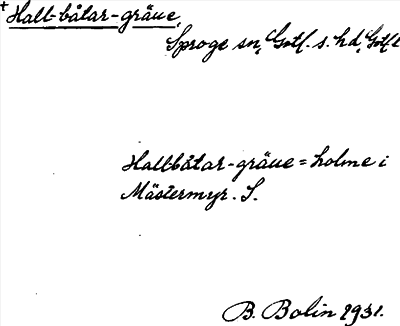 + Hall-båtar-gräue,
Sproge sn, Gotl. s. hd, Gotl. l
Hallbåtar-gräue = holme i
Mästermyr. S.
B. Bolin 1931.